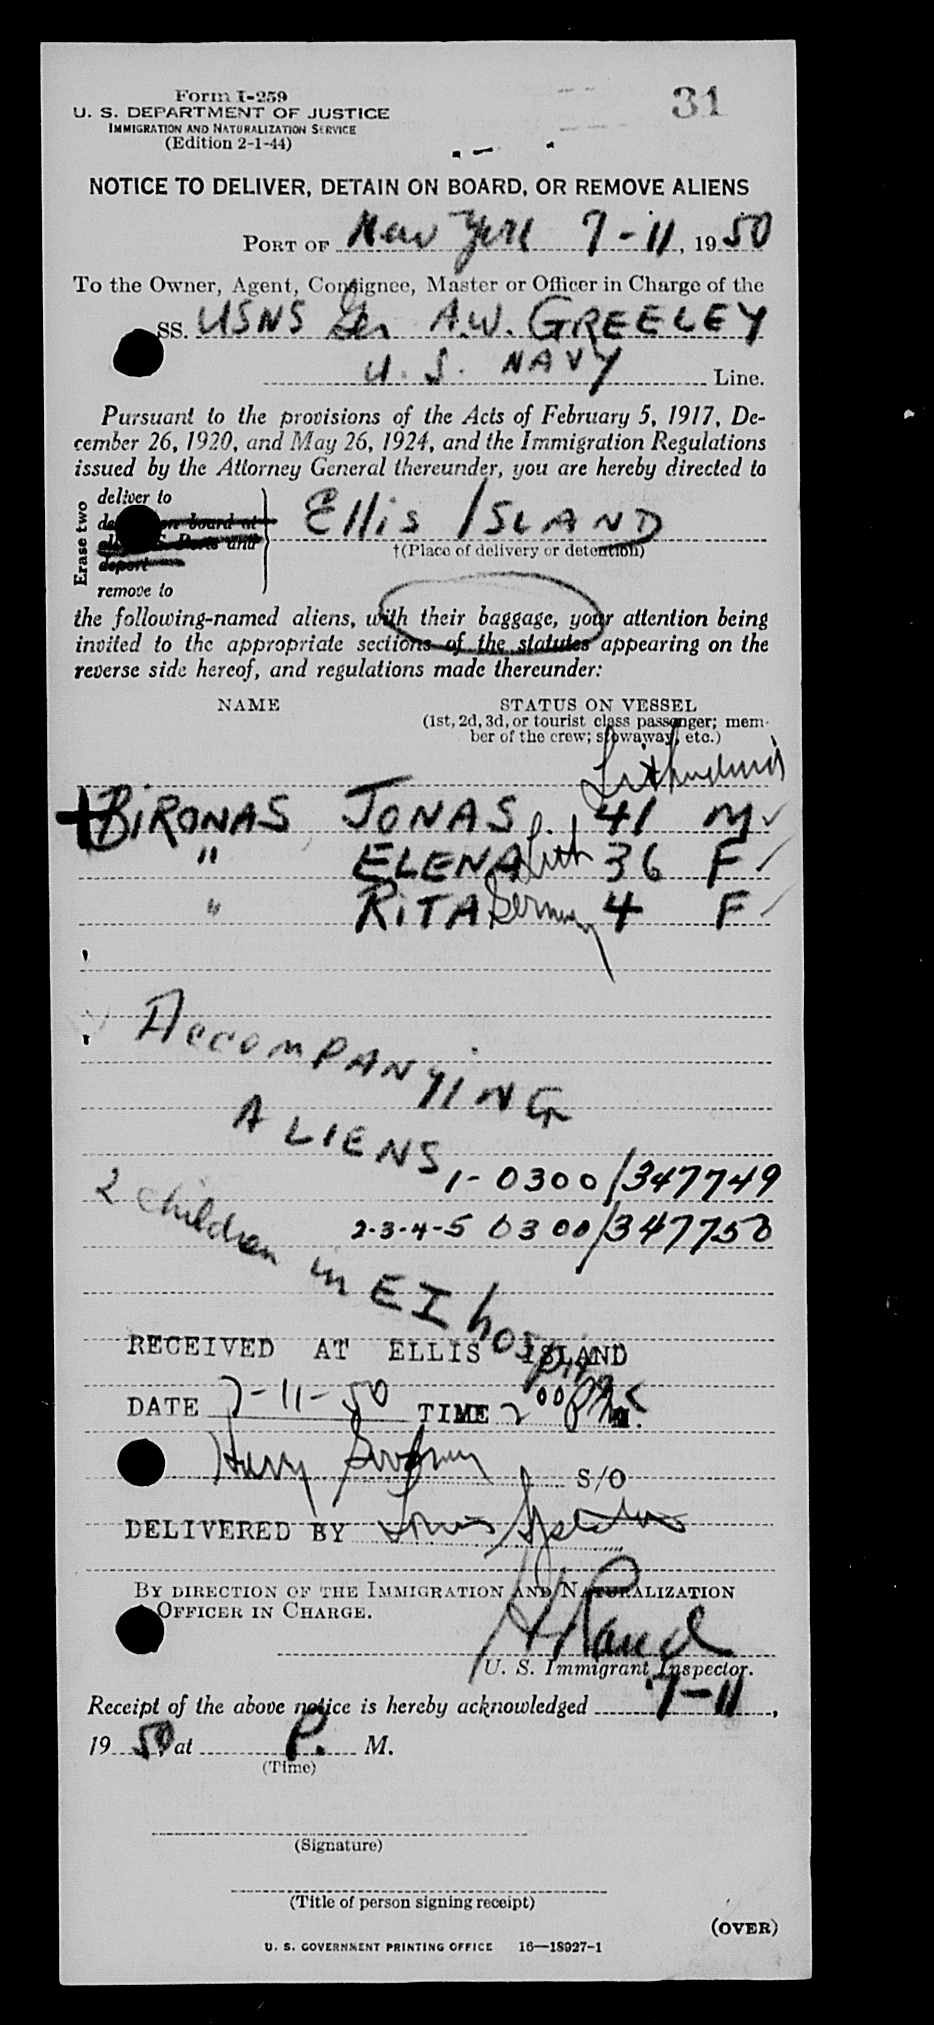 Form I-259
31
U. S. DEPARTMENT OF JUSTICE
IMMIGRATION AND NATURALIZATION SERVICE
(Edition 2-1-44)
NOTICE TO DELIVER, DETAIN ON BOARD, OR REMOVE ALIENS
PORT OF New York 7-11, 1950
To the Owner, Agent, Consignee, Master or Officer in Charge of the
SS. USNS Gen A.W. GREELEY
U. S. NAVY Line.
Pursuant to the provisions of the Acts of February 5, 1917, De-
cember 26, 1920, and May 26, 1924, and the Immigration Regulations
issued by the Attorney General thereunder, you are hereby directed to
Erase two
deliver to
on board at
and
deport
remove to
Ellis ISLAND
†(Place of delivery or detention)
the following-named aliens, with their baggage, your attention being
invited to the appropriate sections of the statutes appearing on the
reverse side hereof, and regulations made thereunder:
NAME STATUS ON VESSEL
(1st, 2d, 3d, or tourist class passenger; mem-
ber of the crew; stowaway, etc.)
BIRONAS JONAS 41 M ✓
" ELENA Lith 36 F ✓
" RITA Germany 4 F ✓
ACCOMPANYING
ALIENS
1- 0300/347749
2-3-4-5 0300/347750
2 children in EI hospital
RECEIVED AT ELLIS ISLAND
DATE 7-11-50 TIME 2 00 PM.
Harry S/O
DELIVERED BY Louis
BY DIRECTION OF THE IMMIGRATION AND NATURALIZATION
OFFICER IN CHARGE.
Rand
U. S. Immigrant Inspector.
Receipt of the above notice is hereby acknowledged 7-11,
1950, at P. M.
(Time)
(Signature)
(Title of person signing receipt)
(OVER)
U. S. GOVERNMENT PRINTING OFFICE 16—18927-1